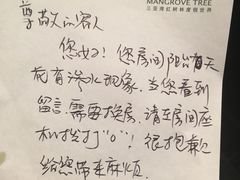 MANGROVE TREE
三亚湾红树林度假世界
尊敬的客人
您好！您房间阳台有天
花有渗水现象，当您看到
留言，需要换房，请在房间座
机拨打“0”！很抱歉
给您带来麻烦.